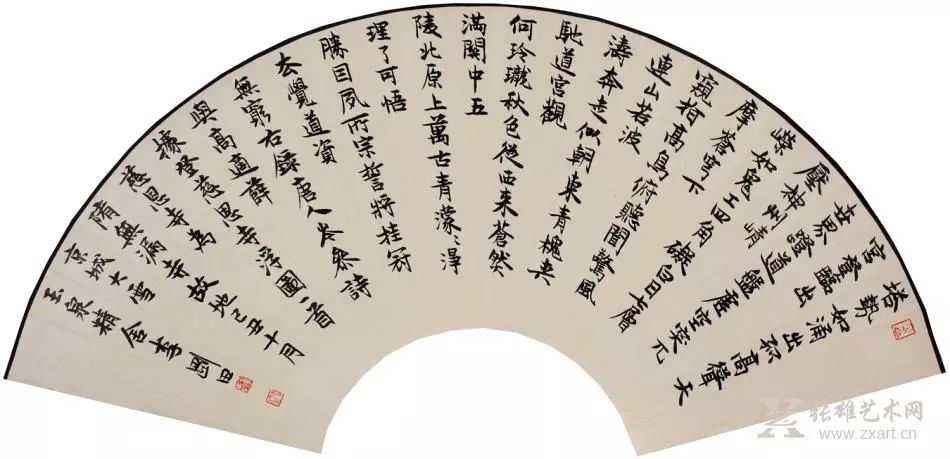 塔勢如涌出孤高聳天
宮登臨出
世界蹬道盤虛空突兀
壓神州崢
嶸如鬼工四角礙白日七層
摩蒼穹下
窺指高鳥俯聽聞驚風
連山若波
濤奔走似朝東青槐夾
馳道宮觀
何玲瓏秋色從西來蒼然
滿關中五
陵北原上萬古青濛〻淨
理了可悟
勝因夙所宗誓將挂冠
去覺道資
無窮右錄唐人岑參詩
與高適薛
據登慈恩寺浮圖一首
慈恩寺為
隋無漏寺故地己丑十月
京城大雪
玉泉精舍李剛田
张雄艺术网
www.zxart.cn